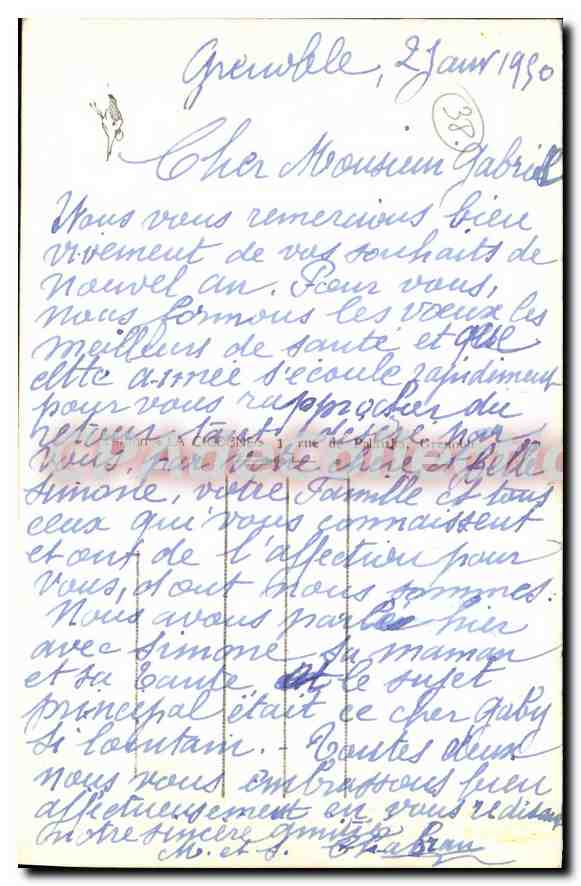 Grenoble, 2 Janv 1950
38.
Cher Monsieur Gabriel
Nous vous remercions bien
vivement de vos souhaits de
nouvel an. Pour vous,
nous formons les vœux les
meilleurs de santé et que
cette année s'écoule rapidement
pour vous rapprocher du
retour tant désiré par
LA CIGOGNE rue de Grenoble
vous, par votre chère et belle
Simone, votre Famille et tous
ceux qui vous connaissent
et ont de l'affection pour
vous, dont nous sommes.
Nous avons parlé hier
avec Simone, sa maman
et sa tante et le sujet
principal était ce cher Gaby
si lointain. - Toutes deux
nous vous embrassons bien
affectueusement en vous redisant
notre sincère amitié
M. et S.